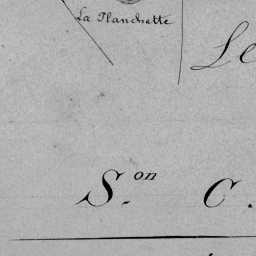 La Planchette
Le
S.on C.